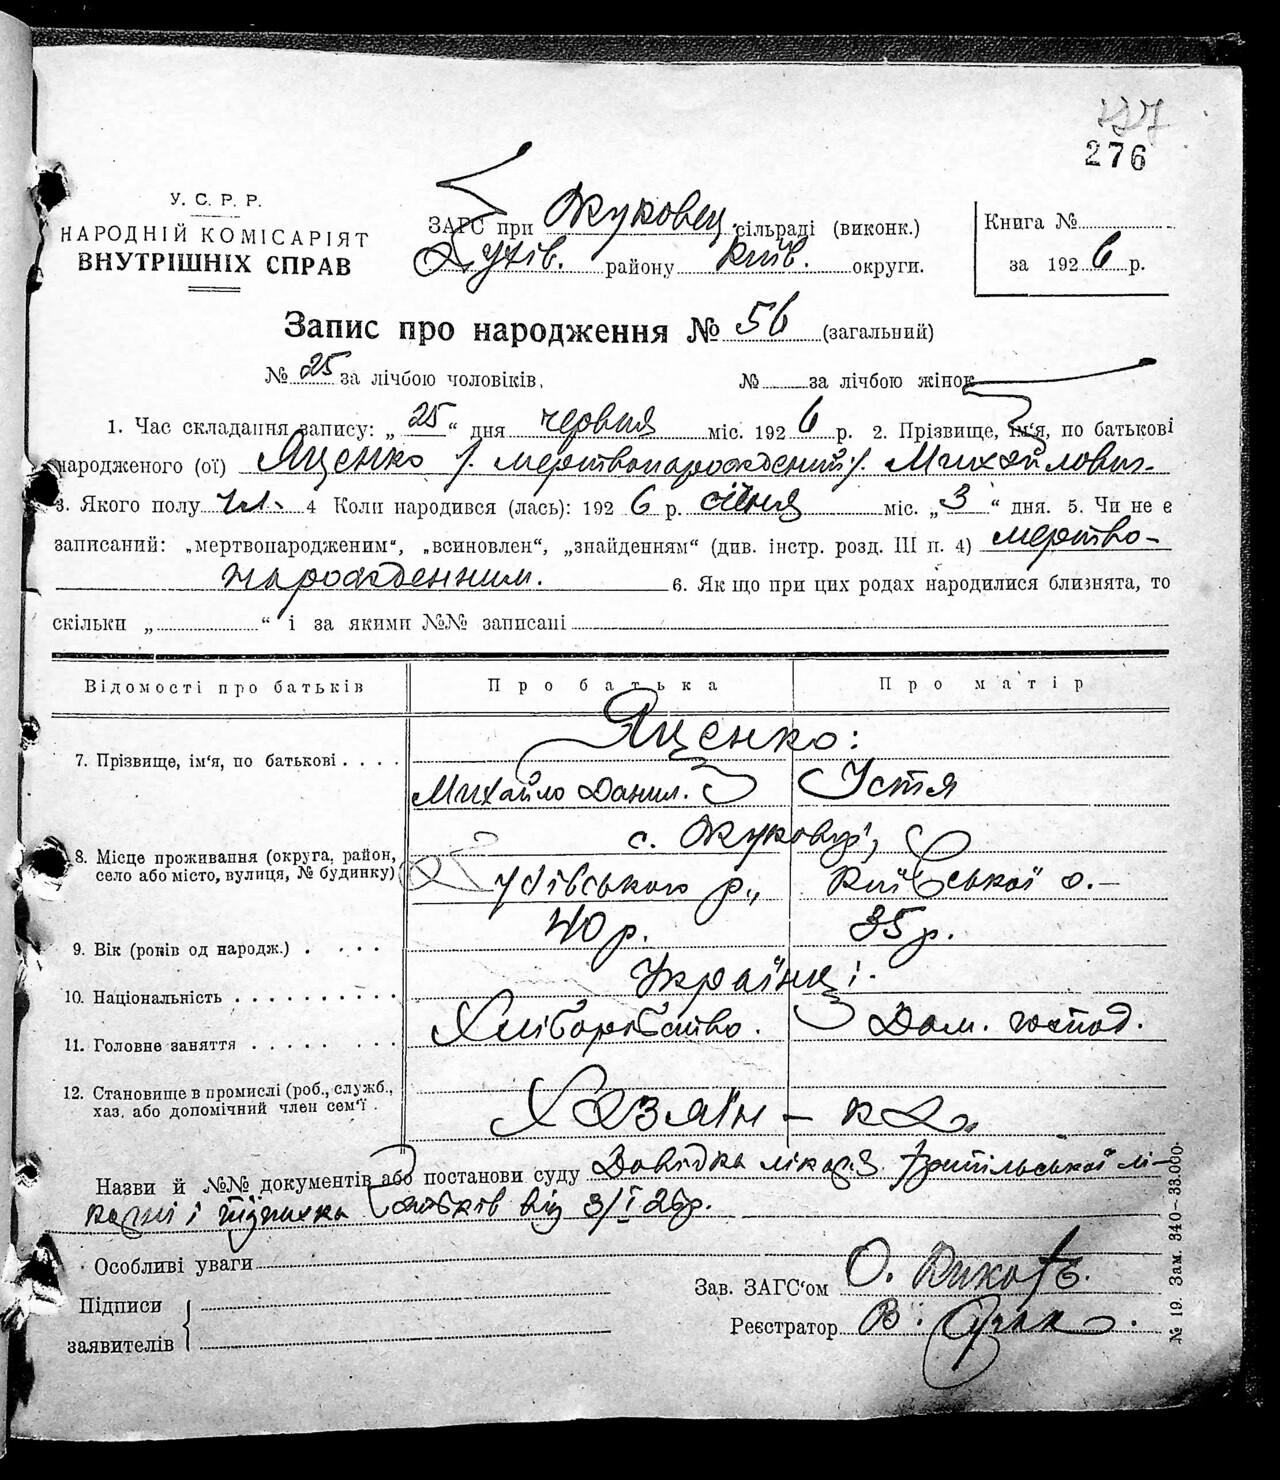 276
У. С. Р. Р.
НАРОДНІЙ КОМІСАРІЯТ
ВНУТРІШНІХ СПРАВ
ЗАГС при Жуковец. сільраді (виконк.)
району Київ. округи.
Книга №
за 1926 р.
Запис про народження № 56 (загальний)
№ 25 за лічбою чоловіків. № за лічбою жінок
1. Час складання запису: „ 25 “ дня червня міс. 1926 р. 2. Прізвище, ім‘я, по батькові
народженого (ої) Яценко /. мертвонарожденний /. Михайлович.
3. Якого полу чл. 4 Коли народився (лась): 1926 р. січня міс. „ 3 “ дня. 5. Чи не є
записаний: „мертвонародженим“, „всиновлен“, „знайденням“ (див. інстр. розд. III п. 4) мертво-
нарожденним. 6. Як що при цих родах народилися близнята, то
скільки „ “ і за якими №№ записані
Відомості про батьків Про батька Про матір
Яценко:
7. Прізвище, ім‘я, по батькові . . . .
Михайло Данил. Устя
с. Жуковці,
8. Місце проживання (округа, район,
село або місто, вулиця, № будинку) р., Київської о.–
9. Вік (років од народж.) . . . . 40 р. 35 р.
10. Національність . . . . . . . . . . Українці.
11. Головне заняття . . . . . . . . Хліборобство. Дом. господ.
12. Становище в промислі (роб., служб.,
хаз. або допомічний член сем‘ї . Хазяїн –
Назви й №№ документів або постанови суду Довідка лікаря Трипільської лі-
карні і підписка батьків від 3/I 26р.
Особливі уваги
Зав. ЗАГС‘ом О.
Підписи
заявителів
Реєстратор В.
№ 19. Зам. 340–33.000.